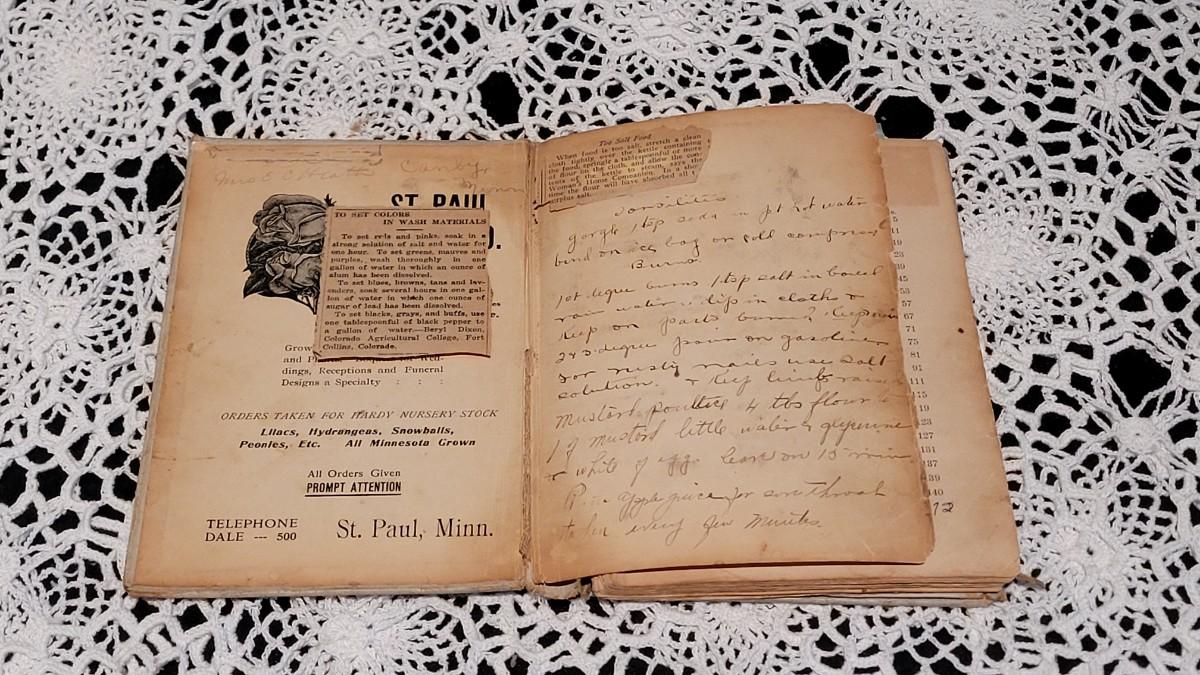 Mrs E C Hiatt Canby
Minn
ST. PAUL
O.
TO SET COLORS
IN WASH MATERIALS
To set reds and pinks, soak in a
strong solution of salt and water for
one hour. To set greens, mauves and
purples, wash thoroughly in one
gallon of water in which an ounce of
alum has been dissolved.
To set blues, browns, tans and lav-
enders, soak several hours in one gal-
lon of water in which one ounce of
sugar of lead has been dissolved.
To set blacks, grays, and buffs, use
one tablespoonful of black pepper to
a gallon of water.—Beryl Dixon,
Colorado Agricultural College, Fort
Collins, Colorado.
Grow
and Pl
dings, Receptions and Funeral
Designs a Specialty : : :
ORDERS TAKEN FOR HARDY NURSERY STOCK
Lilacs, Hydrangeas, Snowballs,
Peonies, Etc. All Minnesota Grown
All Orders Given
PROMPT ATTENTION
TELEPHONE
DALE --- 500
St. Paul, Minn.
Too Salt Food
When food is too salt, stretch a clean
cloth tightly over the kettle containing
the food, sprinkle a tablespoonful or more
of flour on the cloth, and allow the con-
tents of the kettle to steam, says the
Woman's Home Companion. In a short
time the flour will have absorbed all
surplus salt.
Tonsilites
gargle 1 tsp soda in pt hot water
bind on ice bag or cold compress
Burns
1st degree burns 1 tsp salt in boiled
rain water dip in cloths &
keep on parts burned keep
2d 3 degree on gasoline
For rusty nails use salt
solution. & keep limb raised
Mustard poultice 4 tbs flour to
1 of mustard little water & glycerine
or white of egg leave on 15 min
Pine apple juice for sore throat
taken every few minutes.
5
11
19
23
39
45
53
57
67
71
75
81
91
111
115
119
123
127
131
137
139
140
72